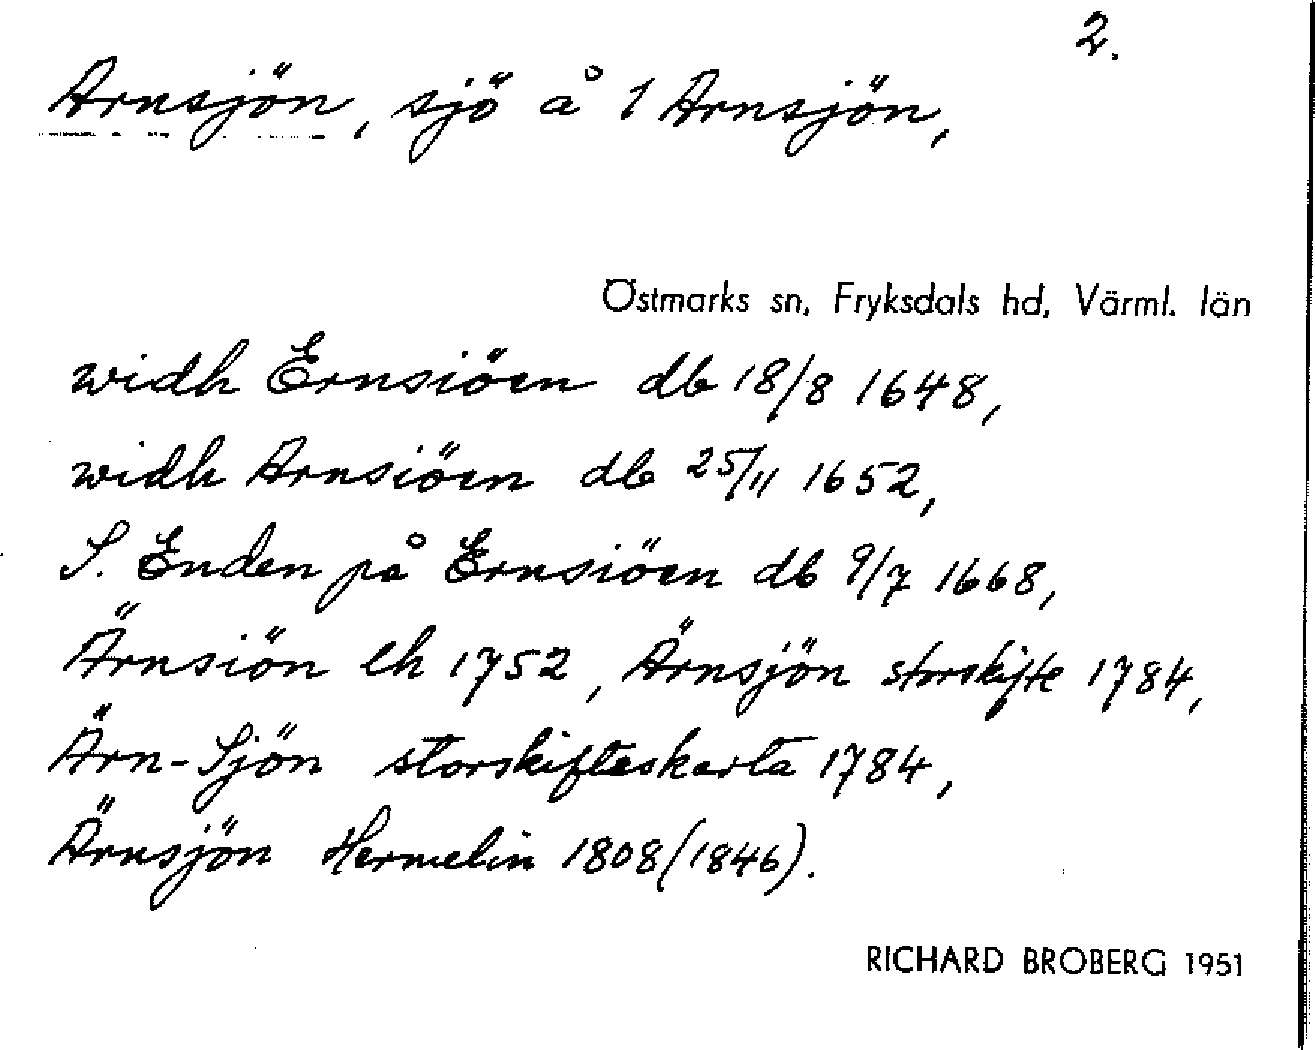 2.
Arnsjön, sjö å 1 Arnsjön,
Östmarks sn, Fryksdals hd, Värml. län
widh Ernsiöen db 18/8 1648,
widh Arnsiöen db 25/11 1652,
S. Enden på Ernsiöen db 9/7 1668,
Ärnsiön lh 1752, Ärnsjön storskifte 1784,
Ärn-Sjön storskifteskarta 1784,
Ärnsjön Hermelin 1808 (1846).
RICHARD BROBERG 1951